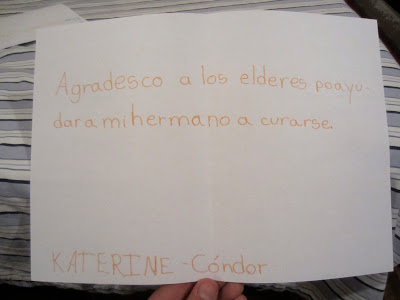 Agradesco a los elderes poayu-
dar a mi hermano a curarse.
KATERINE - Cóndor